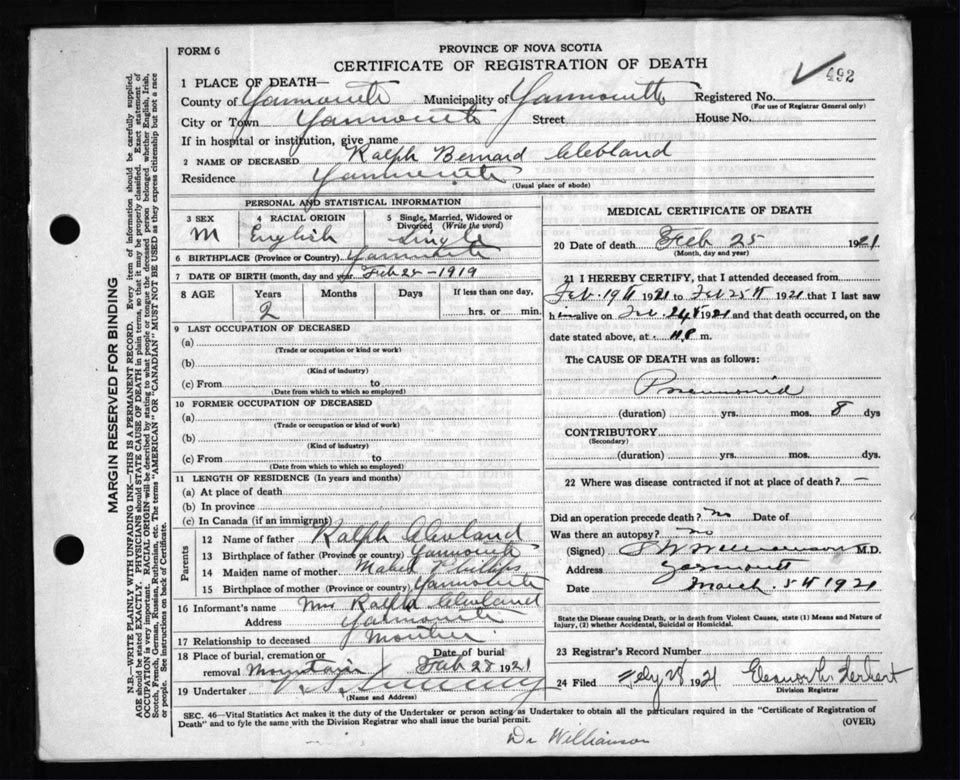 FORM 6
PROVINCE OF NOVA SCOTIA
CERTIFICATE OF REGISTRATION OF DEATH
492
1 PLACE OF DEATH—
County of Yarmouth Municipality of Yarmouth Registered No.
(For use of Registrar General only)
City or Town Yarmouth Street House No.
If in hospital or institution, give name
2 NAME OF DECEASED Ralph Bernard Clebland
Residence Yarmouth
(Usual place of abode)
PERSONAL AND STATISTICAL INFORMATION
3 SEX 4 RACIAL ORIGIN 5 Single, Married, Widowed or
Divorced (Write the word)
M English Single
6 BIRTHPLACE (Province or Country) Yarmouth
7 DATE OF BIRTH (month, day and year) Feb 25 - 1919
8 AGE Years Months Days If less than one day,
2 hrs. or min.
9 LAST OCCUPATION OF DECEASED
(a)
(Trade or occupation or kind or work)
(b)
(Kind of industry)
(c) From to
(Date from which to which so employed)
10 FORMER OCCUPATION OF DECEASED
(a)
(Trade or occupation or kind of work)
(b)
(Kind of industry)
(c) From to
(Date from which to which so employed)
11 LENGTH OF RESIDENCE (In years and months)
(a) At place of death
(b) In province
(c) In Canada (if an immigrant)
Parents
12 Name of father Ralph Cleveland
13 Birthplace of father (Province or country) Yarmouth
14 Maiden name of mother Mabel Phillips
15 Birthplace of mother (Province or country) Yarmouth
16 Informant's name Mrs Ralph Cleveland
Address Yarmouth
17 Relationship to deceased Mother
18 Place of burial, cremation or Date of burial
removal Mountain Feb 28 1921
19 Undertaker
(Name and Address)
MEDICAL CERTIFICATE OF DEATH
20 Date of death Feb 25 1921
(Month, day and year)
21 I HEREBY CERTIFY, that I attended deceased from
Feb. 19th 1921 to Feb 25th 1921 that I last saw
him alive on 24th 1921 and that death occurred, on the
date stated above, at m.
The CAUSE OF DEATH was as follows:
Pneumonia
(duration) yrs. mos. 8 dys
CONTRIBUTORY
(Secondary)
(duration) yrs. mos. dys.
22 Where was disease contracted if not at place of death? —
Did an operation precede death? No Date of
Was there an autopsy? No
(Signed) Williamson M.D.
Address Yarmouth
Date March 5th 1921
State the Disease causing Death, or in death from Violent Causes, state (1) Means and Nature of
Injury, (2) whether Accidental, Suicidal or Homicidal.
23 Registrar's Record Number
24 Filed Feby 28 1921 Herbert
Division Registrar
SEC. 46—Vital Statistics Act makes it the duty of the Undertaker or person acting as Undertaker to obtain all the particulars required in the "Certificate of Registration of
Death" and to fyle the same with the Division Registrar who shall issue the burial permit.
(OVER)
Dr Williamson
MARGIN RESERVED FOR BINDING
N.B.—WRITE PLAINLY WITH UNFADING INK—THIS IS A PERMANENT RECORD. Every item of information should be carefully supplied.
AGE should be stated EXACTLY. PHYSICIANS should STATE CAUSE OF DEATH in plain terms, so that it may be properly classified. Exact statement of
OCCUPATION is very important. RACIAL ORIGIN will be described by stating to what people or tongue the deceased person belonged, whether English, Irish,
Scotch, French, German, Russian, Ruthenian, etc. The terms "AMERICAN" OR "CANADIAN" MUST NOT BE USED as they express citizenship but not a race
or people. See instructions on back of Certificate.